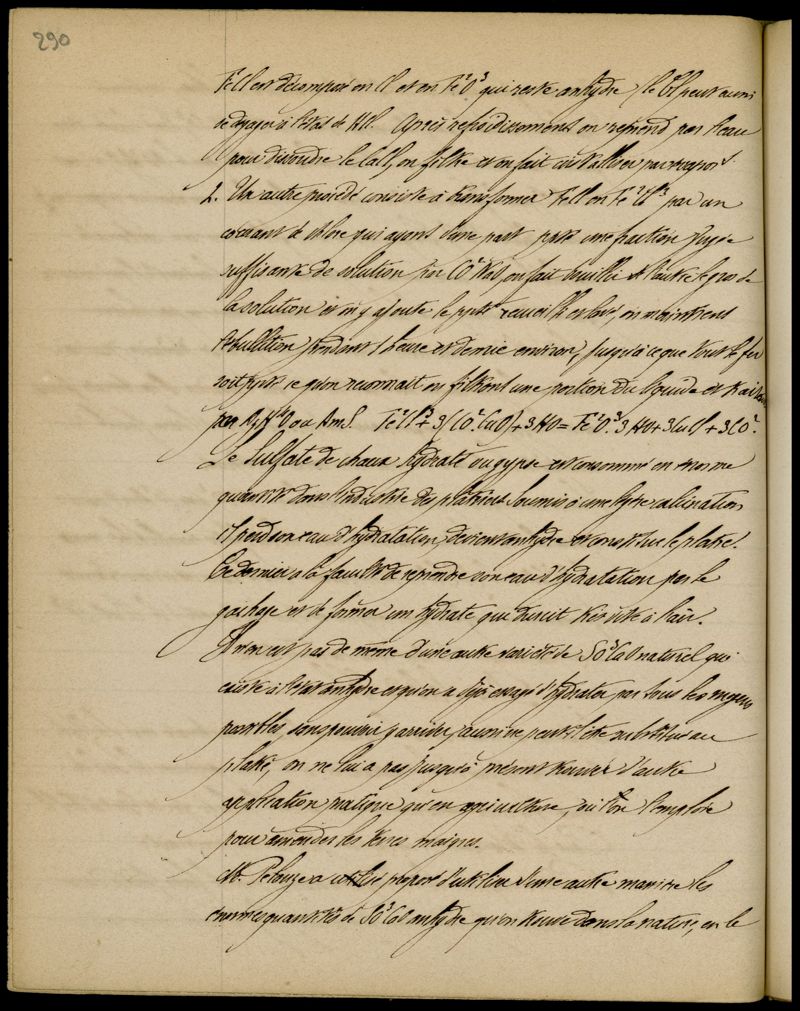 290
Fe²Cl est décomposé en Cl et en Fe²O³ qui reste anhydre / le Cl peut aussi
se dégager à l'état de HCl. Après refroidissement on reprend par l'eau
pour dissoudre le CaCl, on filtre et on fait cristalliser par vapor.
2. Un autre procédé consiste à transformer FeCl en Fe²Cl³ par un
courant de chlore qui ayant d'une part ppté une fraction jugée
suffisante de solution par CO²NaO, on fait bouillir de l'autre le gros de
la solution et on y ajoute le ppté recueilli et lavé, on maintient
l'ébullition pendant 1 heure et demie environ, jusqu'à ce que tout le fer
soit ppté ce qu'on reconnait en filtrant une portion du liquide et traitant
par AzH⁴O ou AmS. Fe²Cl³ + 3(CO².CaO) + 3HO = Fe²O³.3HO + 3CaCl + 3CO².
Le Sulfate de chaux hydraté ou gypse est consommé en énorme
quantité dans l'industrie des plâtriers. Soumis à une légère calcination
il perd son eau d'hydratation, devient anhydre et constitue le plâtre.
Ce dernier a la faculté de reprendre son eau d'hydratation par le
gachage et de former un hydrate qui durcit très vite à l'air.
Il n'en est pas de même d'une autre variété de SO³CaO naturel qui
existe à l'état anhydre et qu'on a déjà essayé d'hydrater par tous les moyens
possibles sans pouvoir y arriver, aussi ne peut il être substitué au
plâtre, on ne lui a pas jusqu'à présent trouvé d'autre
application pratique qu'en agriculture, où l'on l'emploie
pour amender les terres maigres.
M. Pelouze a proposé d'utiliser d'une autre manière les
énormes quantités de SO³CaO anhydre qu'on trouve dans la nature, en le